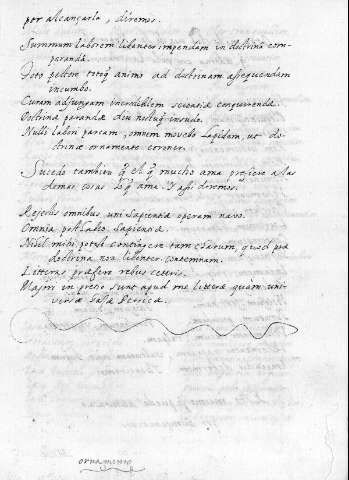 por alcançarla, diremos.
Summum laborem libenter impendam in doctrina com-
paranda.
Toto pectore totoq; animo ad doctrinam assequendam
incumbo.
Curam adjungam incredibilem scientiæ conquirendæ.
Doctrinæ parandæ diu noctuq; insudo.
Nulli labori parcam, omnem movebo lapidem, ut do-
ctrinæ ornamento coroner.
Sucede tambien q̃ el q̃ mucho ama prefiere a las
demas cosas lo q̃ ama. Y assi diremos.
Rejectis omnibus, uni Sapientiæ operam navo.
Omnia post habeo Sapientiæ.
Nihil mihi potest contingere tam charum, quod præ
doctrina non libenter contemnam.
Litteras præfero rebus ceteris.
Majori in pretio sunt apud me litteræ quam uni-
versæ Persicæ.
ornamento